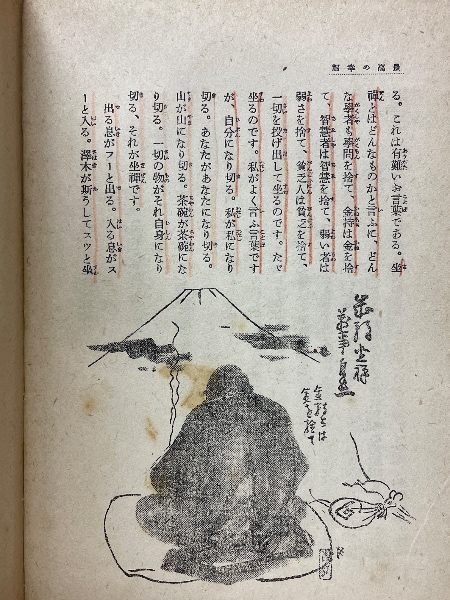 最高の幸福
る。これは有難いお言葉である。坐
禪とはどんなものかと言ふに、どん
な學者も學問を捨て、金持は金を捨
て、智慧者は智慧を捨て、弱い者は
弱さを捨て、貧乏人は貧乏を捨て、
一切を投げ出して坐るのです。たゞ
坐るのです。私がよく言ふ言葉です
が、自分になり切る。私が私になり
切る。あなたがあなたになり切る。
山が山になり切る。茶碗が茶碗にな
り切る。一切の物がそれ自身になり
切る、それが坐禪です。
出る息がフーと出る。入る息がス
ーと入る。澤木が斯うしてスッと坐
金持ちは
金を捨て